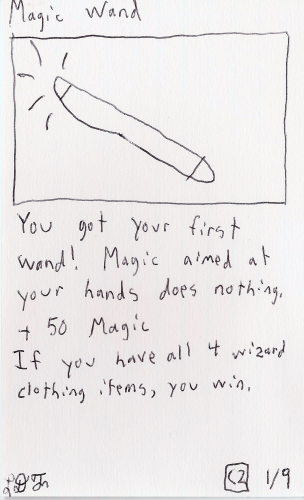 Magic Wand
You got your first
wand! Magic aimed at
your hands does nothing.
+ 50 Magic
If you have all 4 wizard
clothing items, you win.
C2 1/9